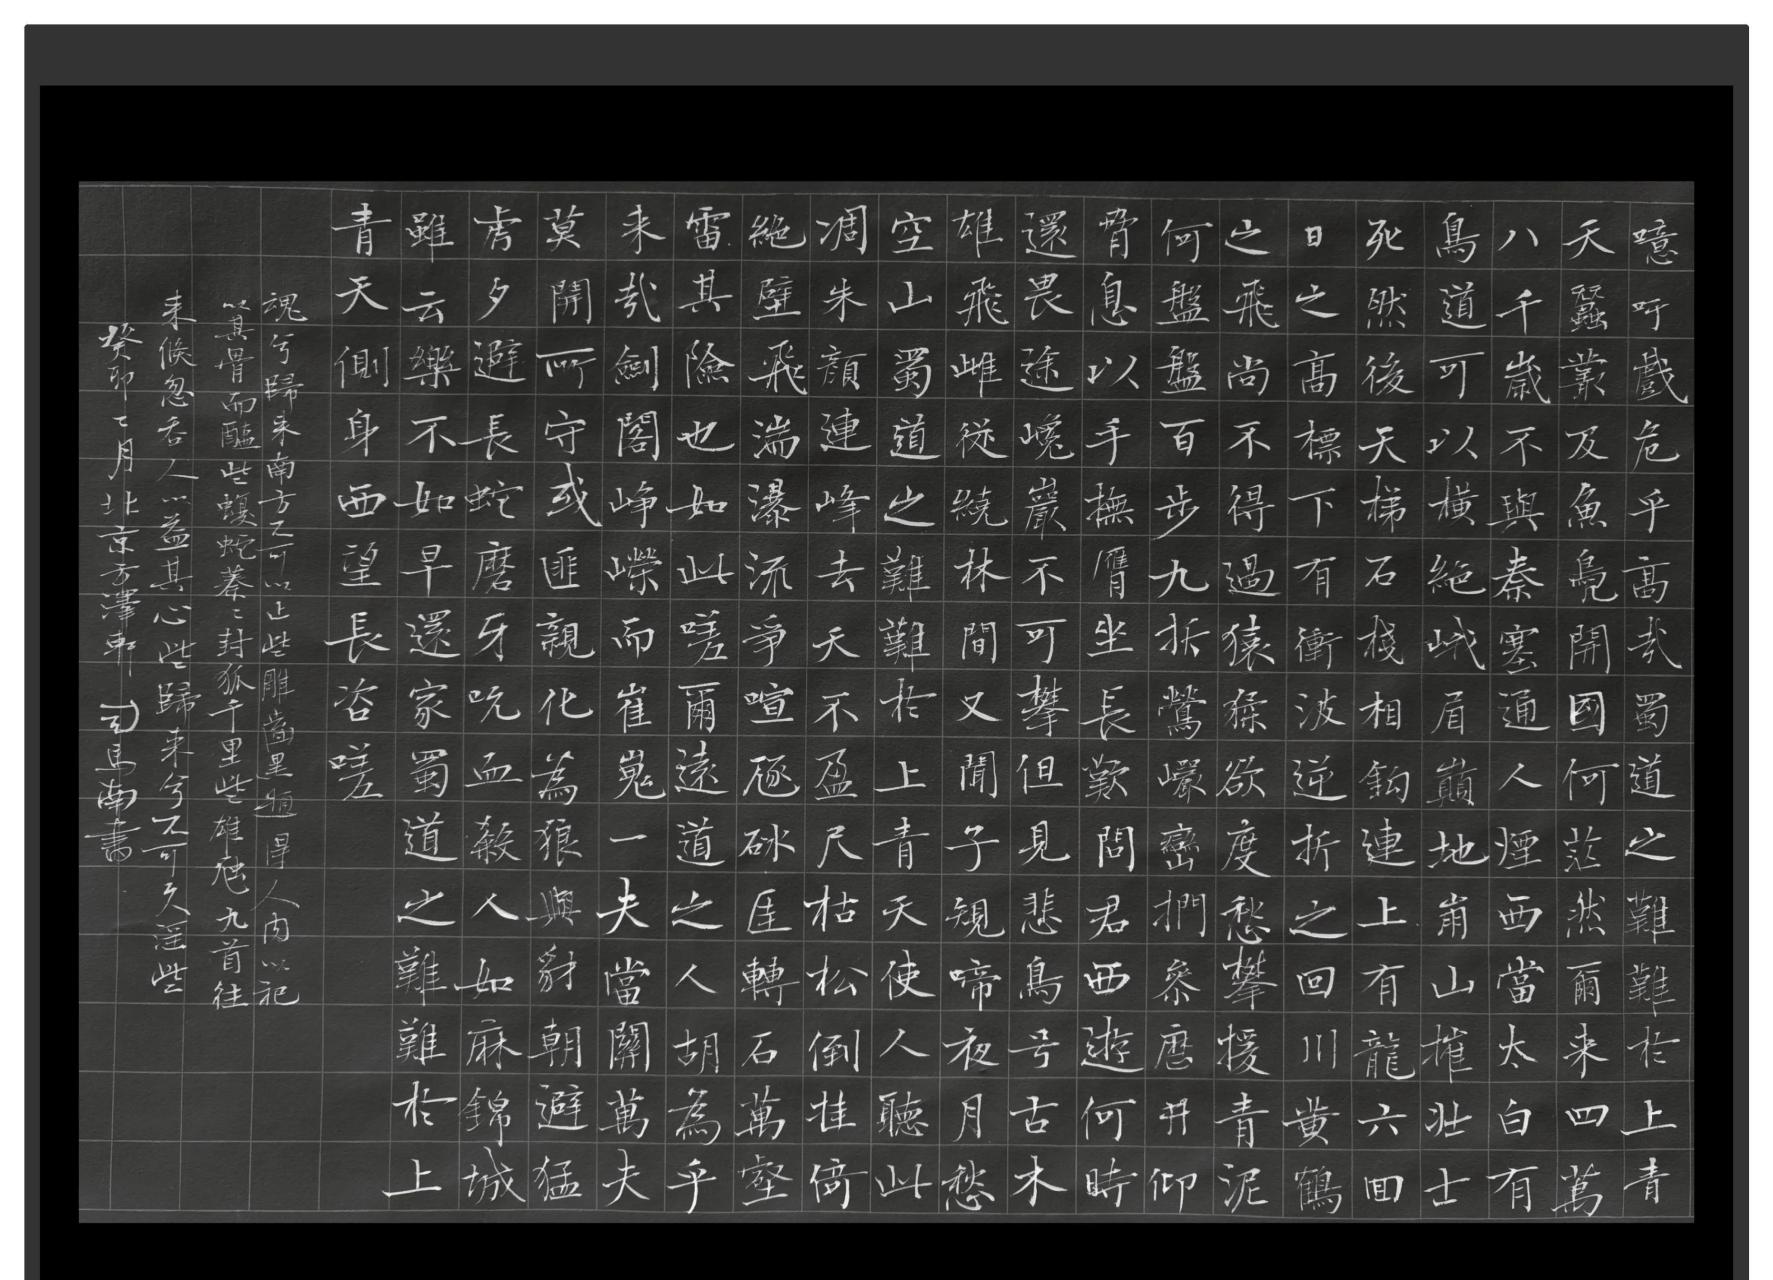 噫吁戲危乎高哉蜀道之難難於上青
天蠶叢及魚鳧開國何茫然爾来四萬
八千歲不與秦塞通人煙西當太白有
鳥道可以横絶峨眉巔地崩山摧壯士
死然後天梯石棧相鈎連上有龍六回
日之高標下有衝波逆折之回川黄鶴
之飛尚不得過猿猱欲度愁攀援青泥
何盤盤百步九折鶯巖巒捫叅歴井仰
脅息以手撫膺坐長歎問君西遊何時
還畏途巉巖不可攀但見悲鳥号古木
雄飛雌從繞林間又聞子規啼夜月愁
空山蜀道之難難於上青天使人聽此
凋朱顔連峰去天不盈尺枯松倒挂倚
絶壁飛湍瀑流爭喧豗砯厓轉石萬壑
雷其險也如此嗟爾遠道之人胡為乎
来哉劍閣崢嶸而崔嵬一夫當關萬夫
莫開所守或匪親化為狼與豺朝避猛
虎夕避長蛇磨牙吮血殺人如麻錦城
雖云樂不如早還家蜀道之難難於上
青天側身西望長咨嗟
魂兮歸来南方不可以止些雕齒黑題得人肉以祀
以其骨而醢些蝮蛇蓁〻封狐千里些雄虺九首往
来倏忽吞人以益其心些歸来兮不可久淫些
癸卯七月北京方澤軒司馬南書